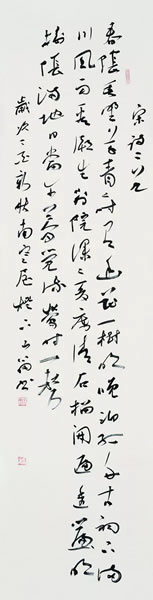 宋詩二首
春陰垂野草青青時有幽花一樹明晚泊孤舟古祠下滿
川風雨看潮生別院深深夏簟清石榴開遍透簾明
樹陰滿地日當午夢覺流鶯時一聲
歲次 秋 南窗 燈下